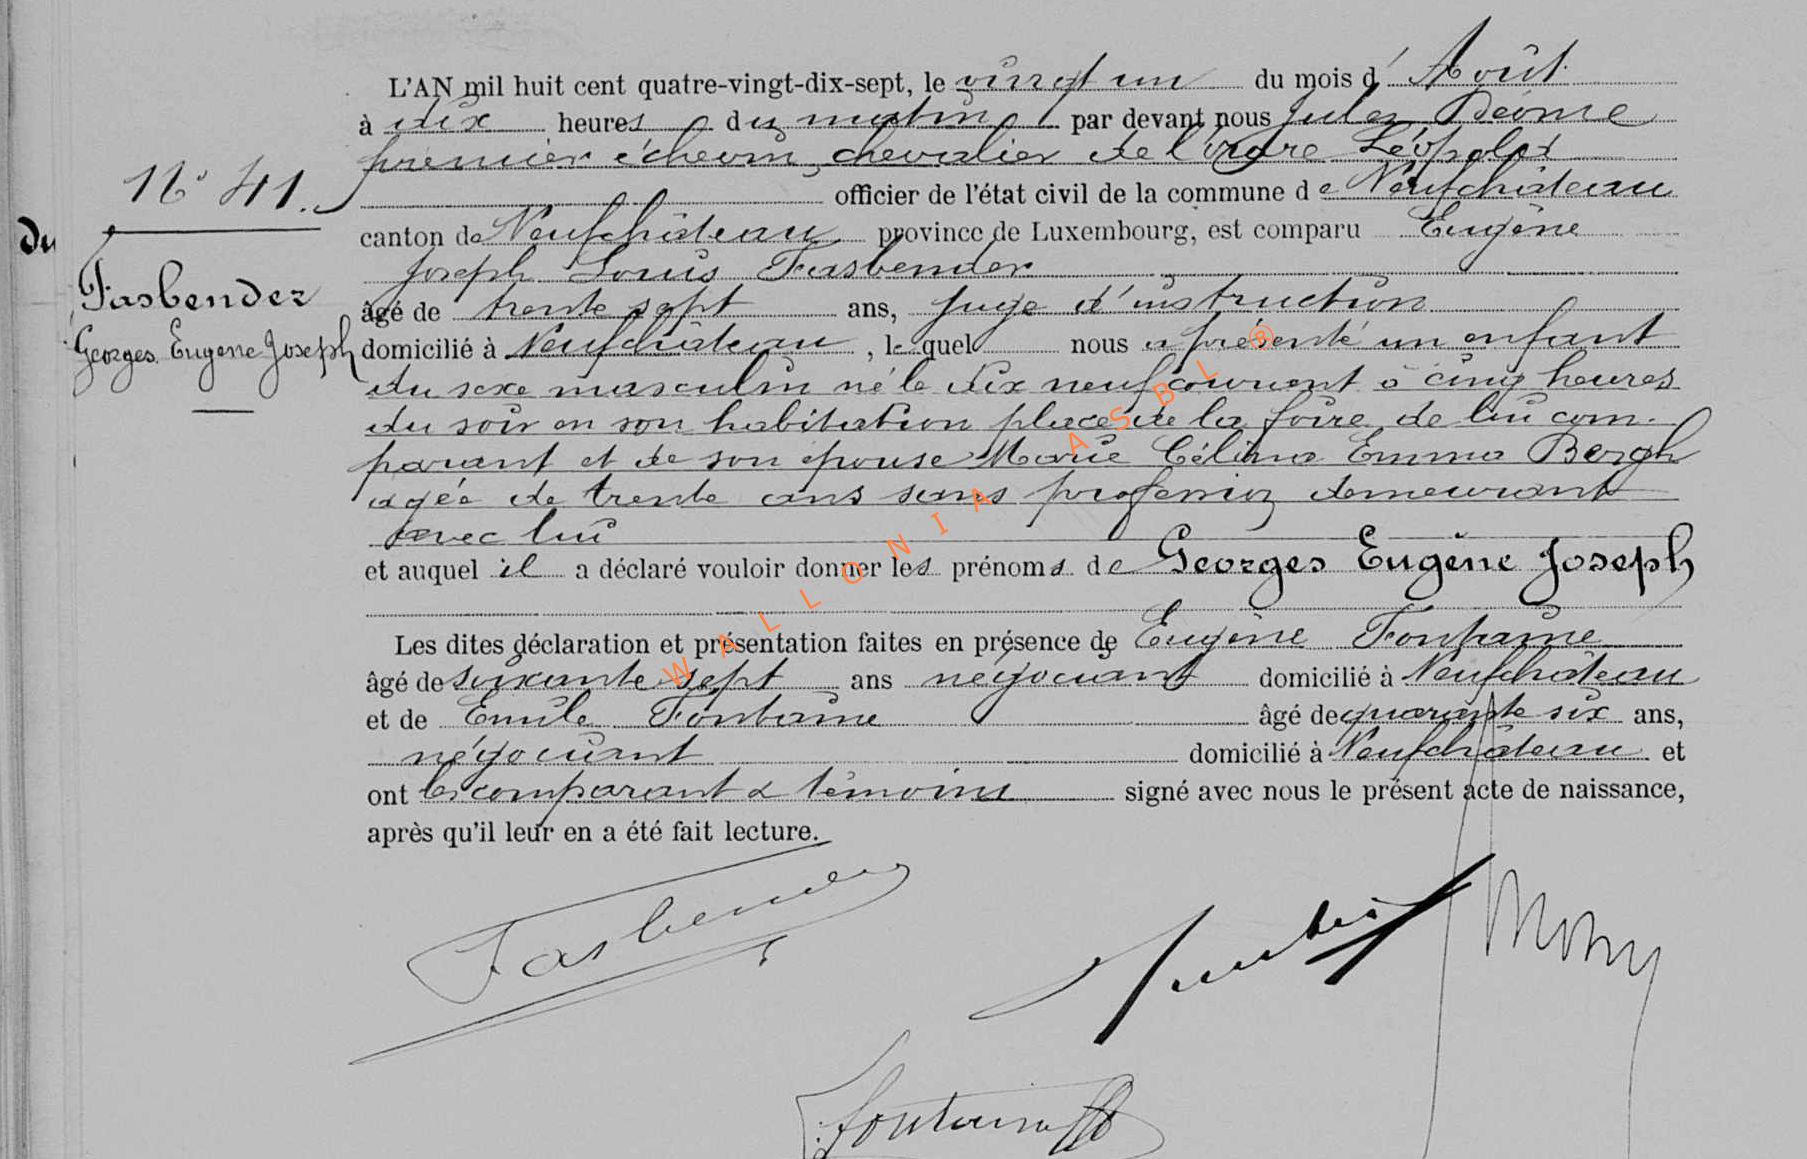 L'AN mil huit cent quatre-vingt-dix-sept, le vingt un du mois d' Août
à dix heures du matin par devant nous Jules
premier échevin, chevalier de l'ordre Léopold
N° 41.
officier de l'état civil de la commune de Neufchâteau
du
canton de Neufchâteau province de Luxembourg, est comparu Eugène
Joseph Louis Fasbender
Fasbender
âgé de trente sept ans, juge d'instruction
Georges Eugène Joseph
domicilié à Neufchâteau, lequel nous a présenté un enfant
du sexe masculin né le dix neuf courant à cinq heures
du soir en son habitation place de la foire de lui com-
parant et de son épouse Marie Célina Emma Bergh
agée de trente ans sans profession demeurant
avec lui
et auquel il a déclaré vouloir donner les prénoms de Georges Eugène Joseph
Les dites déclaration et présentation faites en présence de Eugène Fontaine
âgé de soixante sept ans négociant domicilié à Neufchâteau
et de Emile Fontaine âgé de quarante six ans,
négociant domicilié à Neufchâteau et
ont les comparant & témoins signé avec nous le présent acte de naissance,
après qu'il leur en a été fait lecture.
Fasbender
WALLONIA ASBL ®